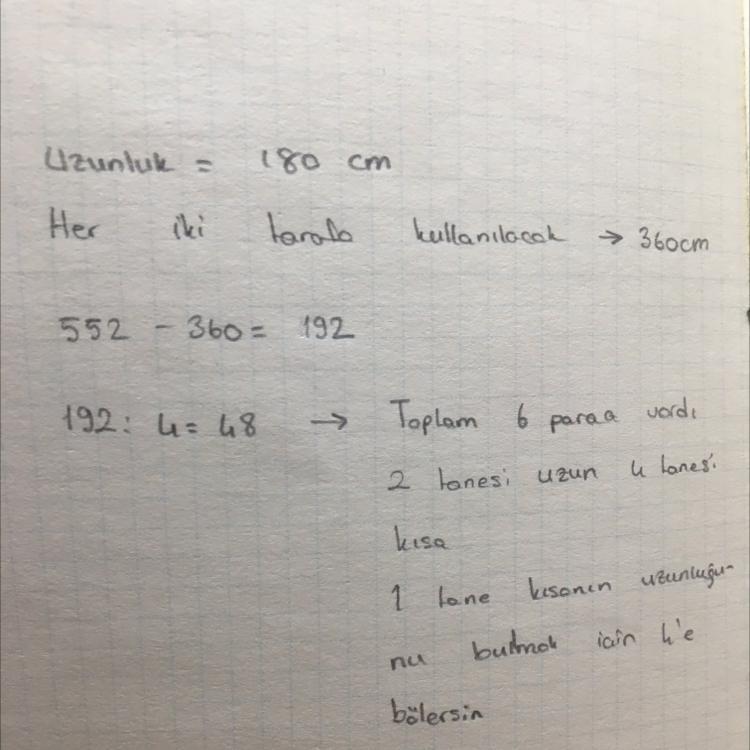 Uzunluk = 180 cm
Her iki tarafa kullanılacak → 360cm
552 - 360 = 192
192 : 4 = 48 → Toplam 6 parça vardı
2 tanesi uzun 4 tanesi
kısa
1 tane kısanın uzunluğu-
nu bulmak için 4'e
bölersin